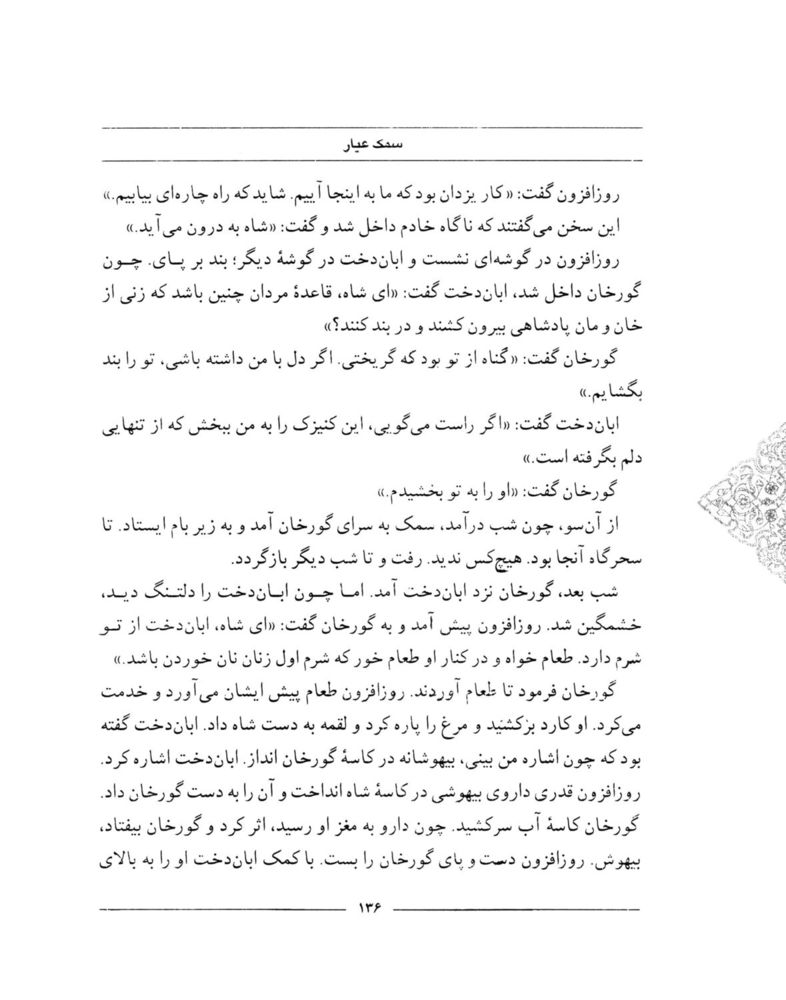 سمک عیار
روزافزون گفت: «کار یزدان بود که ما به اینجا آییم. شاید که راه چاره‌ای بیابیم.»
این سخن می‌گفتند که ناگاه خادم داخل شد و گفت: «شاه به درون می‌آید.»
روزافزون در گوشه‌ای نشست و ابان‌دخت در گوشهٔ دیگر؛ بند بر پـای. چـون
گورخان داخل شد، ابان‌دخت گفت: «ای شاه، قاعدهٔ مردان چنین باشد که زنی از
خان و مان پادشاهی بیرون کشند و در بند کنند؟»
گورخان گفت: «گناه از تو بود که گریختی. اگر دل با من داشته باشی، تو را بند
بگشایم.»
ابان‌دخت گفت: «اگر راست می‌گویی، این کنیزک را به من ببخش که از تنهایی
دلم بگرفته است.»
گورخان گفت: «او را به تو بخشیدم.»
از آن‌سو، چون شب درآمد، سمک به سرای گورخان آمد و به زیر بام ایستاد. تا
سحرگاه آنجا بود. هیچ‌کس ندید. رفت و تا شب دیگر بازگردد.
شب بعد، گورخان نزد ابان‌دخت آمد. امـا چـون ابـان‌دخت را دلتـنگ دیـد،
خشمگین شد. روزافزون پیش آمد و به گورخان گفت: «ای شاه، ابان‌دخت از تـو
شرم دارد. طعام خواه و در کنار او طعام خور که شرم اول زنان نان خوردن باشد.»
گورخان فرمود تا طعام آوردند. روزافزون طعام پیش ایشان می‌آورد و خدمت
می‌کرد. او کارد بزکشید و مرغ را پاره کرد و لقمه به دست شاه داد. ابان‌دخت گفته
بود که چون اشاره من بینی، بیهوشانه در کاسهٔ گورخان انداز. ابان‌دخت اشاره کرد.
روزافزون قدری داروی بیهوشی در کاسهٔ شاه انداخت و آن را به دست گورخان داد.
گورخان کاسهٔ آب سرکشید. چون دارو به مغز او رسید، اثر کرد و گورخان بیفتاد،
بیهوش. روزافزون دست و پای گورخان را بست. با کمک ابان‌دخت او را به بالای
۱۳۶